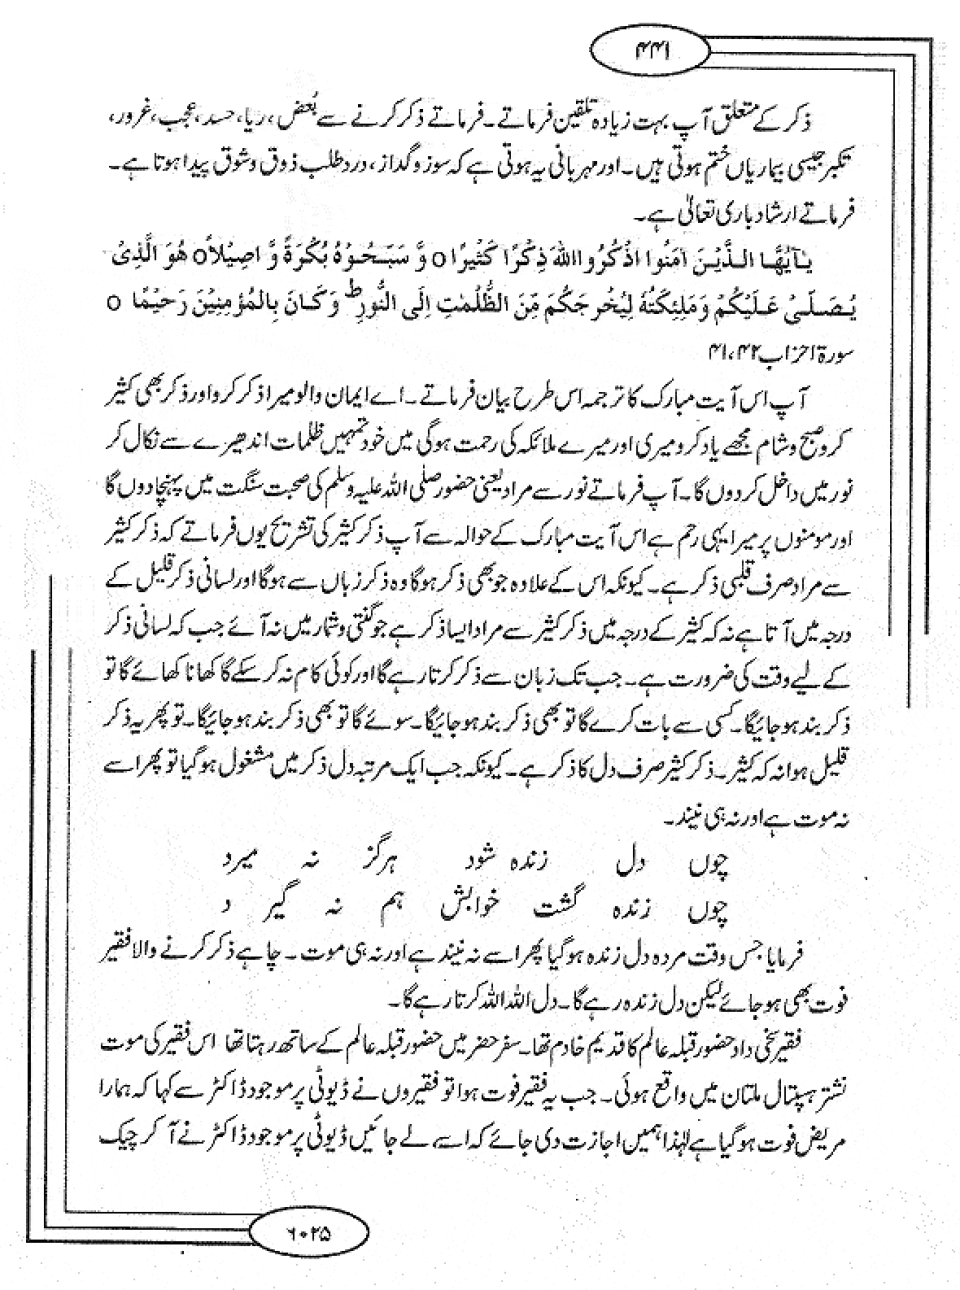 ۴۴۱
ذکر کے متعلق آپ بہت زیادہ تلقین فرماتے۔ فرماتے ذکر کرنے سے بُغض، ریا، حسد، عجب، غرور،
تکبر جیسی بیماریاں ختم ہوتی ہیں۔ اور مہربانی یہ ہوتی ہے کہ سوز و گداز، درد طلب ذوق و شوق پیدا ہوتا ہے۔
فرماتے ارشاد باری تعالیٰ ہے۔
یٰٓاَیُّهَا الَّذِیْنَ اٰمَنُوا اذْكُرُوا اللّٰهَ ذِكْرًا كَثِیْرًا o وَّ سَبِّحُوْهُ بُكْرَةً وَّ اَصِیْلاً o هُوَ الَّذِیْ
یُصَلِّیْ عَلَیْكُمْ وَ مَلٰٓئِكَتُهٗ لِیُخْرِجَكُمْ مِّنَ الظُّلُمٰتِ اِلَی النُّوْرِ ؕ وَ كَانَ بِالْمُؤْمِنِیْنَ رَحِیْمًا o
سورۃ احزاب ۴۱،۴۲
آپ اس آیت مبارک کا ترجمہ اس طرح بیان فرماتے۔ اے ایمان والو میرا ذکر کرو اور ذکر بھی کثیر
کرو صبح و شام مجھے یاد کرو میری اور میرے ملائکہ کی رحمت ہوگی میں خود تمہیں ظلمات اندھیرے سے نکال کر
نور میں داخل کر دوں گا۔ آپ فرماتے نور سے مراد یعنی حضور صلی اللہ علیہ وسلم کی صحبت سنگت میں پہنچا دوں گا
اور مومنوں پر میرا یہی رحم ہے اس آیت مبارک کے حوالہ سے آپ ذکر کثیر کی تشریح یوں فرماتے کہ ذکر کثیر
سے مراد صرف قلبی ذکر ہے۔ کیونکہ اس کے علاوہ جو بھی ذکر ہوگا وہ ذکر زباں سے ہوگا اور لسانی ذکر قلیل کے
درجہ میں آتا ہے نہ کہ کثیر کے درجہ میں ذکر کثیر سے مراد ایسا ذکر ہے جو گنتی و شمار میں نہ آئے جب کہ لسانی ذکر
کے لیے وقت کی ضرورت ہے۔ جب تک زبان سے ذکر کرتا رہے گا اور کوئی کام نہ کر سکے گا کھانا کھائے گا تو
ذکر بند ہو جائیگا۔ کسی سے بات کرے گا تو بھی ذکر بند ہو جائیگا۔ سوئے گا تو بھی ذکر بند ہو جائیگا۔ تو پھر یہ ذکر
قلیل ہوا نہ کہ کثیر۔ ذکر کثیر صرف دل کا ذکر ہے۔ کیونکہ جب ایک مرتبہ دل ذکر میں مشغول ہو گیا تو پھر اسے
نہ موت ہے اور نہ ہی نیند۔
چوں دل زندہ شود ہرگز نہ میرد
چوں زندہ گشت خوابش ہم نہ گیر د
فرمایا جس وقت مردہ دل زندہ ہو گیا پھر اسے نہ نیند ہے اور نہ ہی موت۔ چاہے ذکر کرنے والا فقیر
فوت بھی ہو جائے لیکن دل زندہ رہے گا۔ دل اللہ اللہ کرتا رہے گا۔
فقیر سخی داد حضور قبلہ عالم کا قدیم خادم تھا۔ سفر حضر میں حضور قبلہ عالم کے ساتھ رہتا تھا اس فقیر کی موت
نشتر ہسپتال ملتان میں واقع ہوئی۔ جب یہ فقیر فوت ہوا تو فقیروں نے ڈیوٹی پر موجود ڈاکٹر سے کہا کہ ہمارا
مریض فوت ہو گیا ہے لہٰذا ہمیں اجازت دی جائے کہ اسے لے جائیں ڈیوٹی پر موجود ڈاکٹر نے آ کر چیک
۶۰۲۵